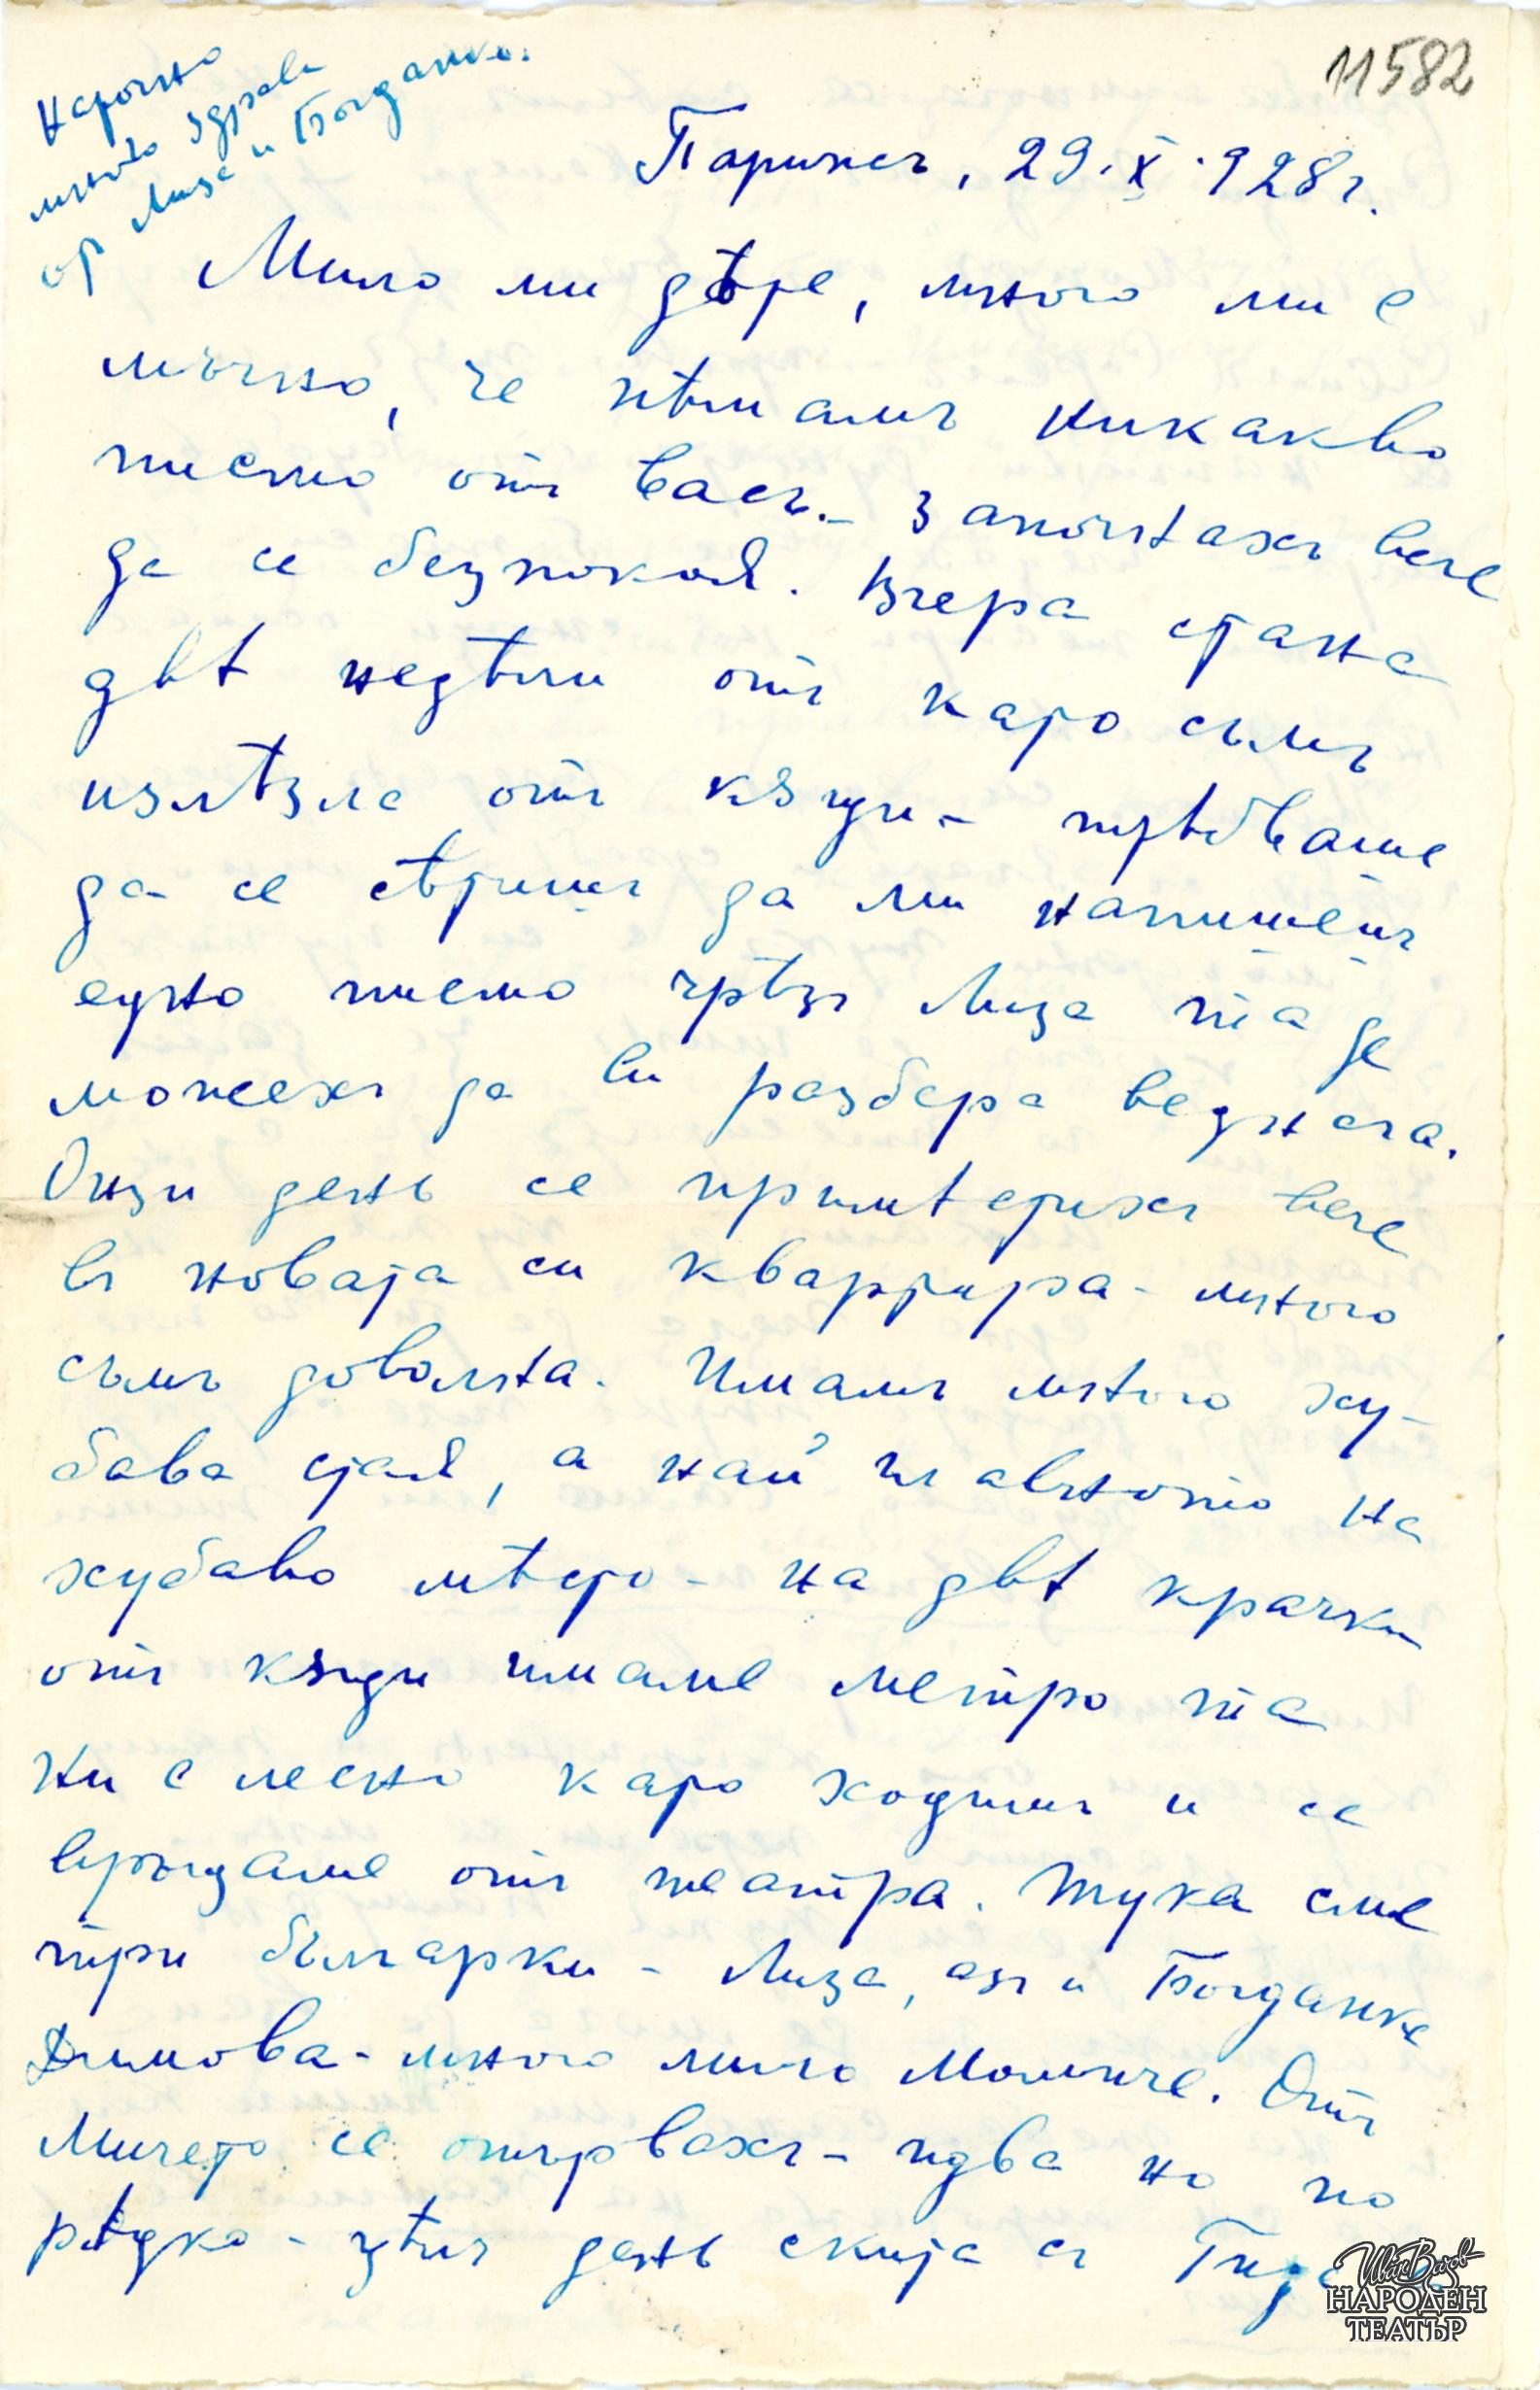 Нарочно
много здраве
от Лиза и Богданка.
11582
Парижъ, 29.X.928г.
Мило ми дѣте, много ми е
мъчно, че нѣмамъ никакво
писмо отъ васъ. – Започнахъ вече
да се безпокоя. Вчера стана
двѣ недѣли отъ като съмъ
излѣзла отъ кѫщи – трѣбваше
да се сѣтишъ да ми напишешъ
едно писмо чрѣзъ Лиза та да
можехъ да ви разбера веднага.
Онзи день се примѣстихъ вече
въ новата си квартира – много
съмъ доволна. Имамъ много ху-
бава стая, а най главното на
хубаво мѣсто – на двѣ крачки
отъ кѫщи имаме метро та
ни е лесно като ходимъ и се
връщаме отъ театра. Тука сме
три българки – Лиза, азъ и Богданка
Димова – много мило момиче. Отъ
Мичето се отървахъ – идва но по
рѣдко – цѣлъ день скита съ
Иван Вазов
НАРОДЕН
ТЕАТЪР